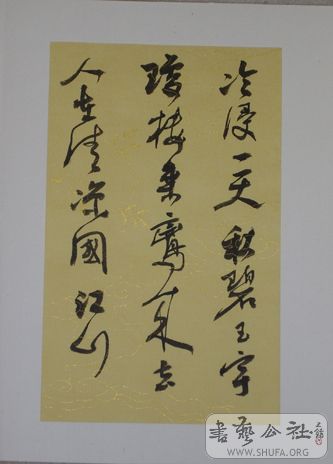 冷浸一天秋碧玉宇
瓊樓乘鸞来去
人在清涼國江山
書藝公社
WWW.SHUFA.ORG